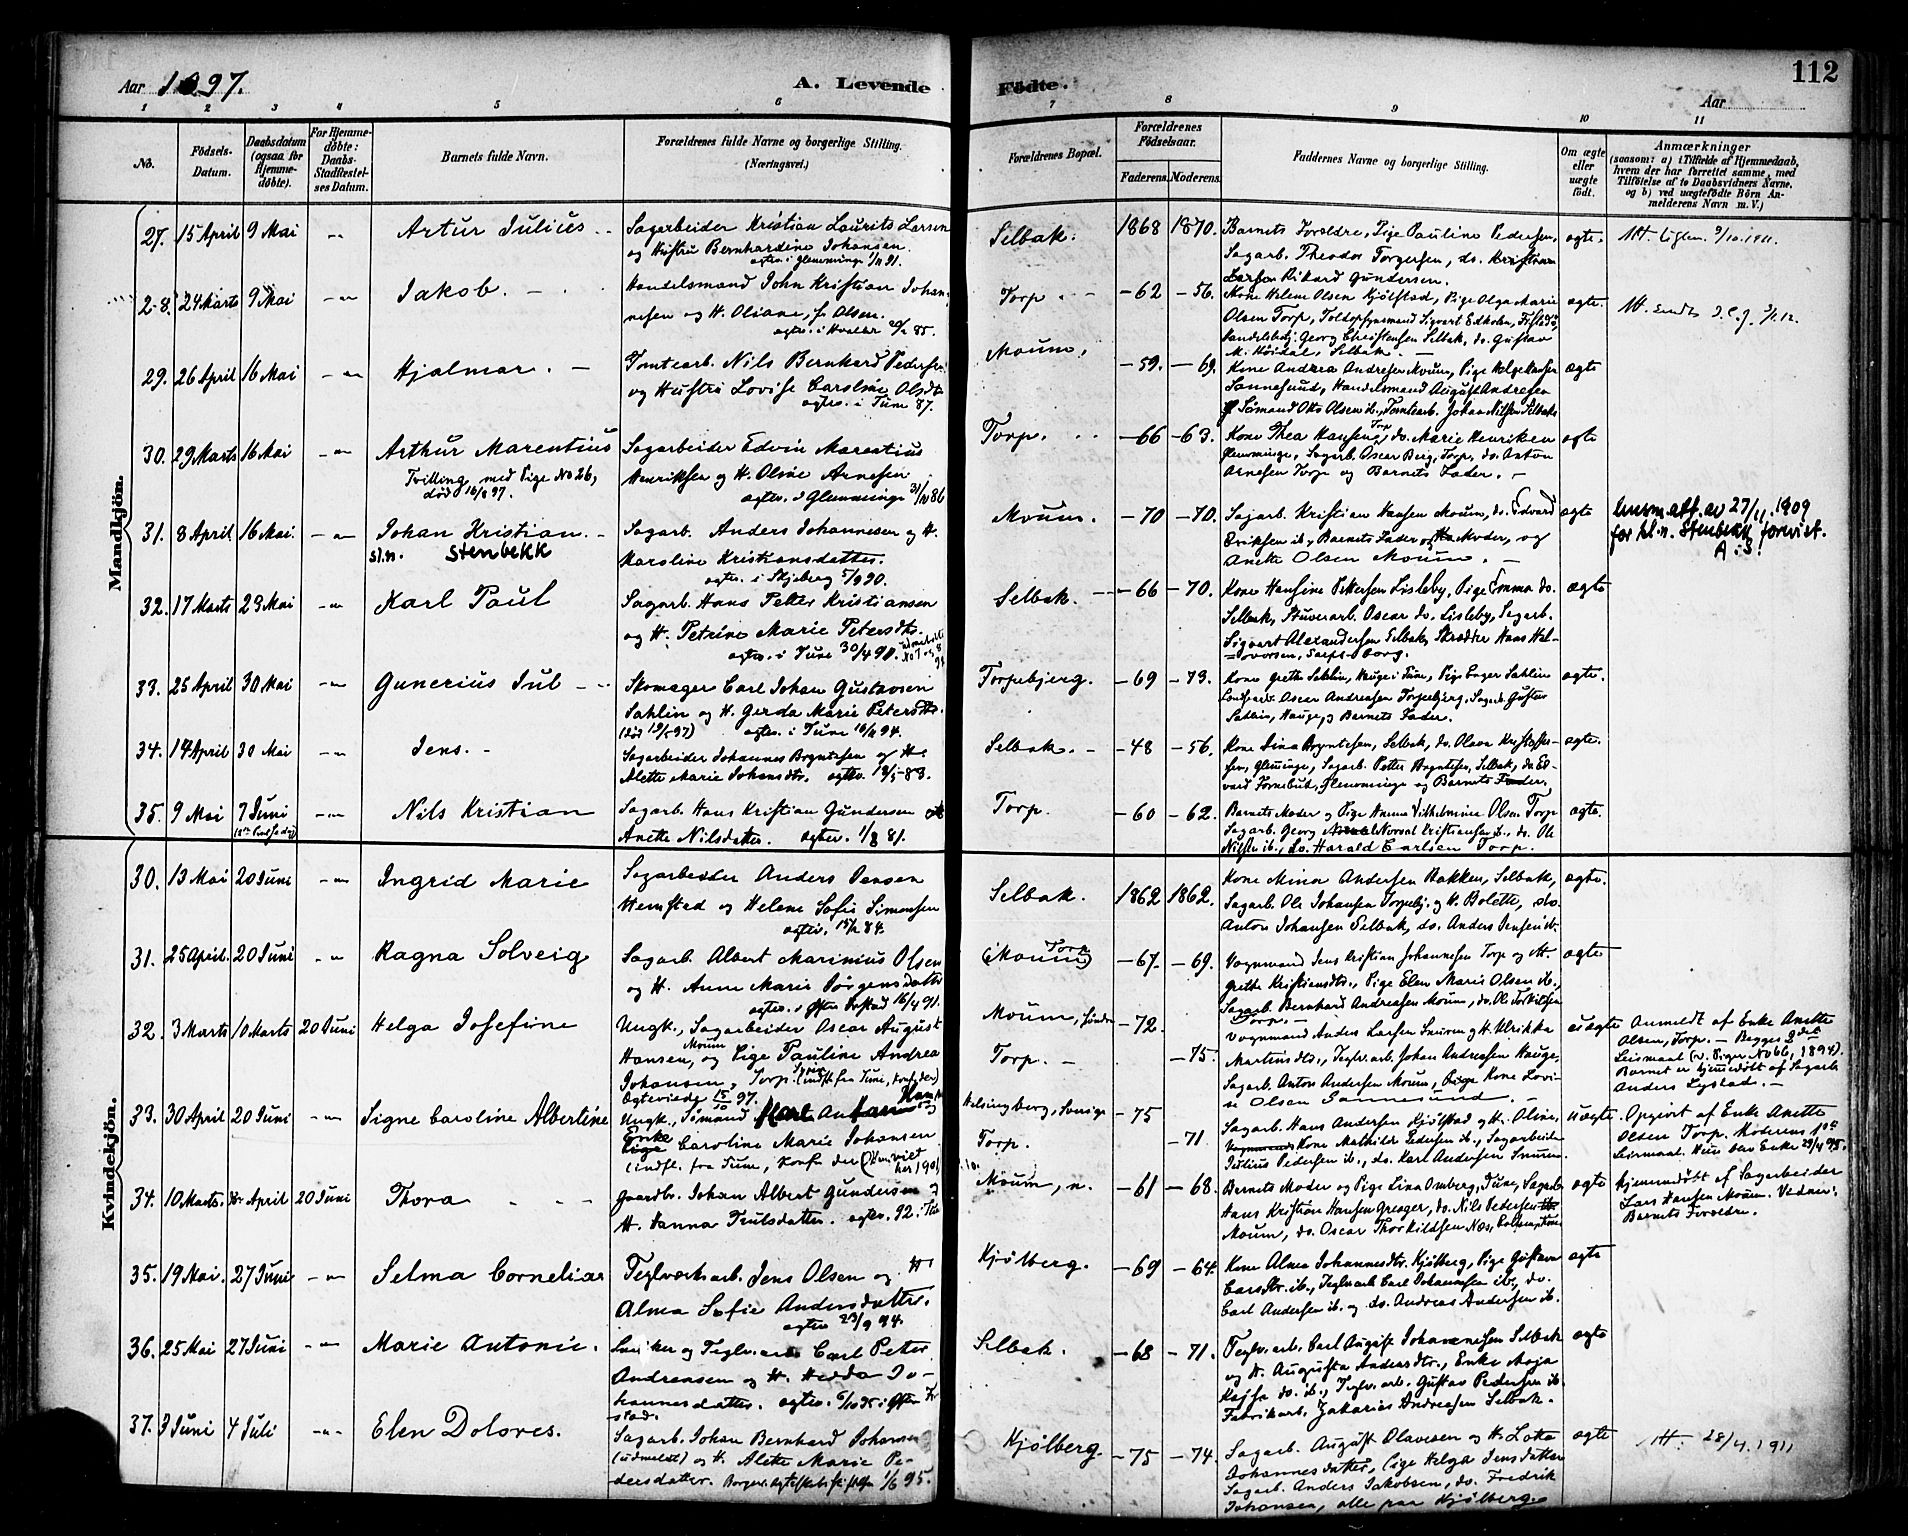 Aar 1897.
A. Levende
Fødte.
112
Aar
1 2 3 4 5 6 7 8 9 10 11
No.
Fødsels-Datum.
Daabsdatum (ogsaa for Hjemmedøbte).
For Hjemmedøbte: Daabs-Stadfæstelses Datum.
Barnets fulde Navn.
Forældrenes fulde Navne og borgerlige Stilling. (Næringsvei.)
Forældrenes Bopæl.
Forældrenes Fødselsaar.
Faderens. Moderens.
Faddernes Navne og borgerlige Stilling.
Om ægte eller uægte født.
Anmærkninger
(saasom: a) i Tilfælde af Hjemmedaab, hvem der har forrettet samme, med Tilføielse af to Daabsvidners Navne, og b) ved uægtefødte Børn Anmelderens Navn m. V.)
Mandkjön.
27. 15 April 9 Mai Artur Julius
Sagarbeider Kristian Laurits Larsen
og Hustru Bernhardine Johansen.
Selbak. 1868 1870.
Barnets Forældre, Pige Pauline Pedersen,
Sagarb. Theodor Torgersen, do. Kristian
Larsen Rikard Gundersen.
ægte.
28. 24 Marts 9 Mai Jakob.
Handelsmand John Kristian Johan-
nesen og H. Oliane, f. Olsen.
Torp -62 -56.
Kone Helene Olsen Kjølstad, Pige Olga Marie
Olsen Torp,
ægte.
29. 26 April 16 Mai Hjalmar.
Tomtearb. Nils Bernhard Pedersen
og Hustru Lovise Caroline Olsdtr
ægtev. i Tune 87.
Moum, -59. -69.
Kone Andrea Andresen Moum, Pige Helga Hansen
Sannesund, Handelsmand August Andresen
Sømand Otto Olsen ib., Tomtearb. Johan Nilsen Selbak
ægte
30. 29 Marts 16 Mai Arthur Marentius
Tvilling med Pige No 26,
død 16/8 97.
Sagarbeider Edvin Marentius
Henriksen og H. Oline Arnesen
ægtev. i Glemminge 31/10 86
Torp. -66 -63.
Kone Thea Hansen Torp, do. Marie Henriksen
Glemminge, Sagarb. Oscar Berg, Torp, do. Anton
Arnesen Torp og Barnets Fader.
ægte
31. 8 April 16 Mai Johan Kristian
sl.n. Stenbekk
Sagarb. Anders Johannesen og H.
Karoline Kristiansdatter.
ægtev. i Skjeberg 5/9 90.
Moum. -70 -70.
Sagarb. Kristian Hansen Moum, do. Edvard
Eriksen ib., Barnets Fader og Moder, og
Anette Olsen Moum.
ægte
av 27/11.1909
for sl.n. Stenbekk forevist.
A. S.
32. 17 Marts 23 Mai Karl Paul
Sagarb. Hans Petter Kristiansen
og H. Petrine Marie Petersdtr.
ægtev. i Tune 30/4 90.
Selbak. -66 -70.
Kone Hansine Pettersen Lisleby, Pige Emma do.
Selbak, Stuverarb. Oscar do. Lisleby, Sagarb.
Sigvart Alexandersen Selbak, Skrædder Hans Hal-
vorsen, Sarpsborg.
ægte
33. 25 April 30 Mai Gunerius Jul
Skomager Carl Johan Gustavsen
Sahlin og H. Gerda Marie Petersdtr.
ægtev. i Tune
Torpebjerg. -69 -73.
Kone Grethe Sahlin, Hauge i Tune, Pige Inger Sahlin
Oscar Andreasen Torpebjerg, Sagarb. Gustav
Sahlin, Hauge, og Barnets Fader.
ægte.
34. 14 April 30 Mai Jens.
Sagarbeider Johannes Bryntesen og H.
Alette Marie Johansdtr. ægtev. 18/5-83.
Selbak. -48 -56.
Kone Lina Bryntesen, Selbak, do. Olava Kristoffer-
sen, Glemminge, Sagarb. Petter Bryntesen, Selbak, do. Ed-
vard Fornebut, Glemminge og Barnets Fader,
ægte.
35. 9 Mai 7 Juni Nils Kristian
Sagarb. Hans Kristian Gundersen og
Anette Nilsdatter. ægtev. 1/8 81.
Torp. -60 -62.
Barnets Moder og Pige Hanna Vilhelmine Olsen Torp
Sagarb. Georg Norval Kristiansen ib., do. Ole
Nilsen ib., do. Harald Carlsen Torp.
ægte.
Kvindekjön.
30. 13 Mai 20 Juni Ingrid Marie
Sagarbeider Anders Jensen
Hemstad og Helene Sofie Simonsen
Selbak. 1862 1862.
Kone Mina Andersen Bakken, Selbak,
Sagarb. Ole Johansen Torpebj. og H. Bolette, do.
Anton Johansen Selbak, do. Anders Jensen ib.
ægte.
31. 25 April. 20 Juni Ragna Solveig
Sagarb. Albert Marinius Olsen
og H. Anne Marie Jørgensdatter
16/4 91.
(Moum) Torp -67. -69.
Vognmand Jens Kristian Johannesen Torp og H.
Grethe Kristiansdtr., Pige Elen Marie Olsen ib.,
Sagarb. Bernhard Andreasen Moum, do. Ole Torkildsen
Torp.
ægte
32. 3 Marts 10 Marts 20 Juni Helga Josefine
Ungk., Sagarbeider Oscar August
Hansen, Moum og Pige Pauline Andrea
Johansen, Torp (indfl. fra Tune, konf. der)
Ægteviede 15/10 97.
Moum, Søndre -72.
Torp. -75.
Vognmand Anders Larsen Smuren og H. Ulrikka
Martinsdtr., Teglv.arb. Johan Andreasen Hauge,
Sagarb. Anton Andersen Moum, Kone Lovi-
se Olsen Sannesund.
uægte
Anmeldt af Enke Anette
Olsen, Torp. — Begges 2det
Leiermaal (v. Piger No 66, 1894).
Barnet er hjemmedøbt af Sagarb.
Anders Lystad.
33. 30 April 20 Juni Signe Caroline Albertine
Ungk., Sømand
Enke Caroline Marie Johansen
(indfl. fra Tune, konf. der)
Helsingborg, Sverige -75
Torp. -71
Sagarb. Hans Andersen Kjølstad og H. Oline,
Kone Mathilde Pedersen ib., Sagarbeider
Julius Pedersen ib., do. Karl Andersen Smuren.
uægte.
Opgivet af Enke Anette
Olsen Torp. Moderens 1ste
Leiermaal. Hun blev Enke 29/4 95.
34. 10 Marts. April 20 Juni Thora
Gaardbr. Johan Albert Gundersen og
H. Hanna Trulsdatter. ægtev. 92. i Tune
Moum, n. -61 -68.
Barnets Moder og Pige Lina Omberg, Tune, Sagarb.
Hans Kristian Hansen Greager, do. Nils Pedersen
Moum, do. Oscar Thorkildsen
ægte
Hjemmedøbt af Sagarbeider
Lars Hansen Moum. Vidner:
Barnets Forældre.
35. 19 Mai. 27 Juni Selma Cornelia
Teglværksarb. Jens Olsen og H
Alma Sofie Andersdatter.
ægtev 23/9 94.
Kjølberg. -69 -64.
Kone Alma Johannesdtr. Kjølberg, Pige Gustava
Larsdtr. ib., Teglv.arb Carl Johannesen ib., do.
Carl Andersen ib. og do. Andreas Andersen ib.
ægte
36. 25 Mai 27 Juni Marie Antonie.
Snedker og Teglv.arb Carl Peter
Andreasen og H. Hedda Jo-
hannesdatter.
Selbak. -68 -71.
Teglv.arb. Carl August Johannesen Selbak
og H. Augusta Andersdtr., Enke Maja
Kajsa do. ib., Teglv.arb. Gustav Pedersen ib.
Fabrikarb. Zakarias Andreasen Selbak.
ægte
37. 3 Juni 4 Juli Elen Dolores.
Sagarb. Johan Bernhard Johansen
(udmeldt) og H. Alette Marie Pe-
dersdatter.
1/6 95.
Kjølberg -75 -74.
Sagarb. August Olavesen og H. Lotta
Johannesdatter, Pige Helga Jensdatter
Sagarb. Anders Jakobsen, do. Fredrik
Johansen, alle paa Kjølberg.
ægte
28/4 1911